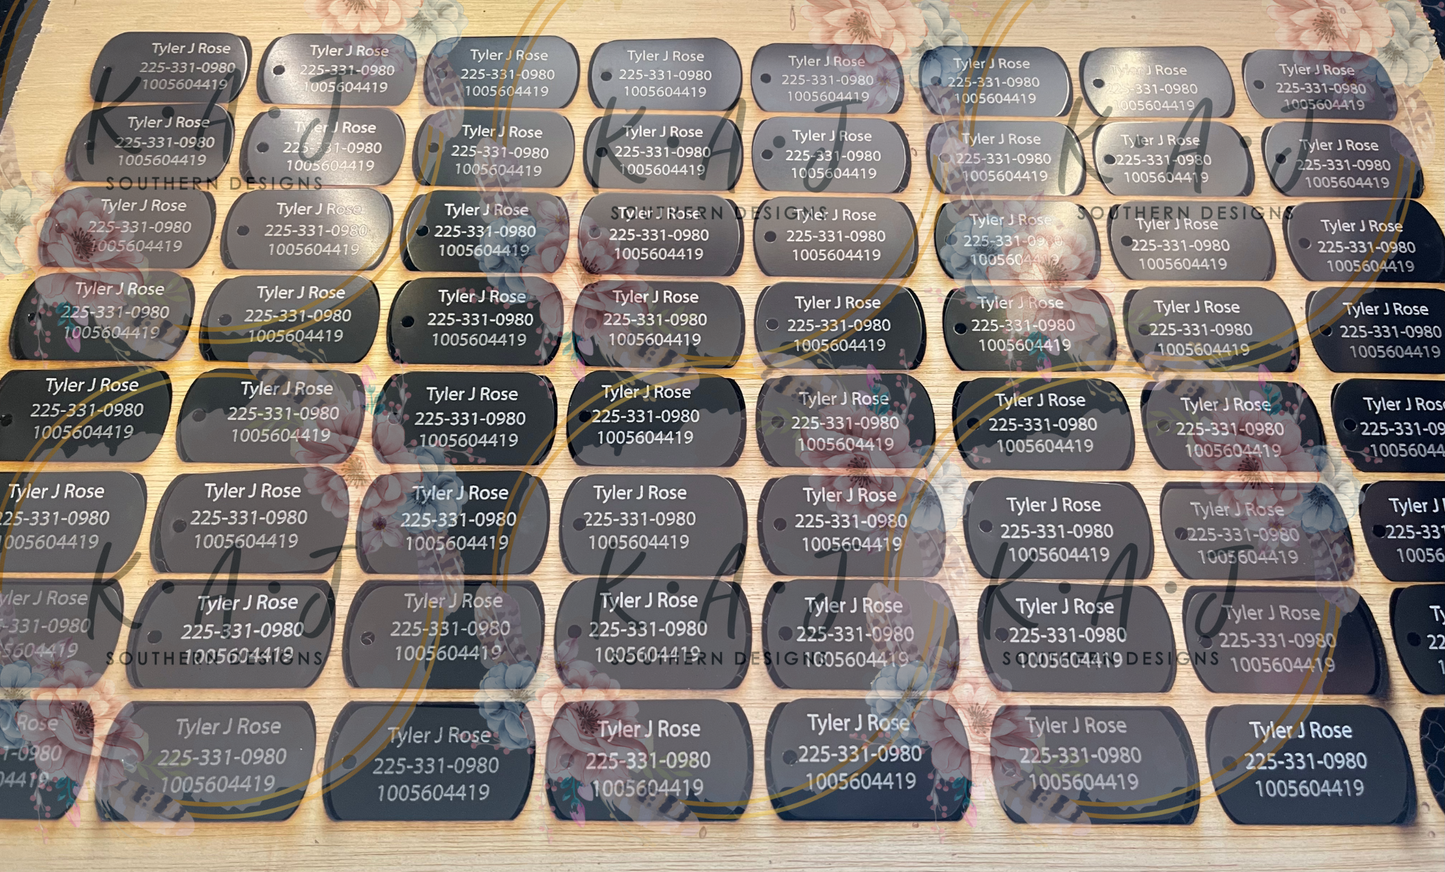 Tyler J Rose Tyler J Rose Tyler J Rose Tyler J Rose Tyler J Rose Tyler J Rose Tyler J Rose Tyler J Rose
225-331-0980 225-331-0980 225-331-0980 225-331-0980 225-331-0980 225-331-0980 225-331-0980 225-331-0980
1005604419 1005604419 1005604419 1005604419 1005604419 1005604419 1005604419 1005604419
Tyler J Rose Tyler J Rose Tyler J Rose Tyler J Rose Tyler J Rose Tyler J Rose Tyler J Rose Tyler J Rose
225-331-0980 225-331-0980 225-331-0980 225-331-0980 225-331-0980 225-331-0980 225-331-0980 225-331-0980
1005604419 1005604419 1005604419 1005604419 1005604419 1005604419 1005604419 1005604419
K.A.J K.A.J K.A.J
SOUTHERN DESIGNS SOUTHERN DESIGNS SOUTHERN DESIGNS
Tyler J Rose Tyler J Rose Tyler J Rose Tyler J Rose Tyler J Rose Tyler J Rose Tyler J Rose Tyler J Rose
225-331-0980 225-331-0980 225-331-0980 225-331-0980 225-331-0980 225-331-0980 225-331-0980 225-331-0980
1005604419 1005604419 1005604419 1005604419 1005604419 1005604419 1005604419 1005604419
Tyler J Rose Tyler J Rose Tyler J Rose Tyler J Rose Tyler J Rose Tyler J Rose Tyler J Rose Tyler J Rose
225-331-0980 225-331-0980 225-331-0980 225-331-0980 225-331-0980 225-331-0980 225-331-0980 225-331-0980
1005604419 1005604419 1005604419 1005604419 1005604419 1005604419 1005604419 1005604419
Tyler J Rose Tyler J Rose Tyler J Rose Tyler J Rose Tyler J Rose Tyler J Rose Tyler J Rose Tyler J Rose
225-331-0980 225-331-0980 225-331-0980 225-331-0980 225-331-0980 225-331-0980 225-331-0980 225-331-09
1005604419 1005604419 1005604419 1005604419 1005604419 1005604419 1005604419 10056044
Tyler J Rose Tyler J Rose Tyler J Rose Tyler J Rose Tyler J Rose Tyler J Rose Tyler J Rose Tyler J
225-331-0980 225-331-0980 225-331-0980 225-331-0980 225-331-0980 225-331-0980 225-331-0980 225-33
1005604419 1005604419 1005604419 1005604419 1005604419 1005604419 1005604419 10056
K.A.J K.A.J K.A.J
SOUTHERN DESIGNS SOUTHERN DESIGNS SOUTHERN DESIGNS
Tyler J Rose Tyler J Rose Tyler J Rose Tyler J Rose Tyler J Rose Tyler J Rose Ty
331-0980 225-331-0980 225-331-0980 225-331-0980 225-331-0980 225-331-0980 225-331-0980 22
5604419 1005604419 1005604419 1005604419 1005604419 1005604419 1005604419 1
J Rose Tyler J Rose Tyler J Rose Tyler J Rose Tyler J Rose Tyler J Rose Tyler J Rose
1-0980 225-331-0980 225-331-0980 225-331-0980 225-331-0980 225-331-0980 225-331-0980
04419 1005604419 1005604419 1005604419 1005604419 1005604419 1005604419